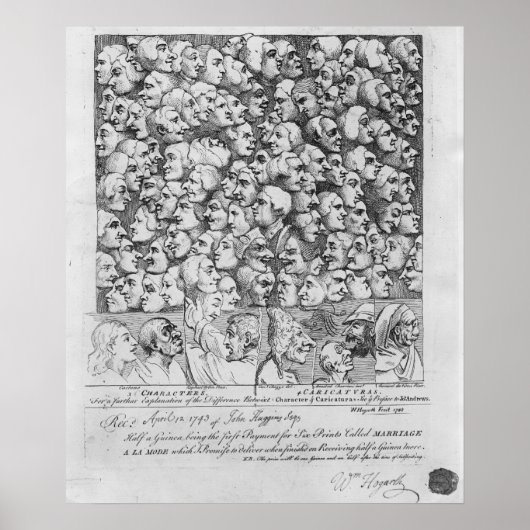 3 CHARACTERS.
4 CARICATURAS.
For a farther Explanation of the Difference Betwixt Character & Caricatura See ye Preface to Joh. Andrews.
W. Hogarth Fecit 1743
Recd. April 12 1743 of John Huggins Esqr.
Half a Guinea being the first Payment for Six Prints Called MARRIAGE
A LA MODE which I Promise to deliver when finish'd on Receiving half a Guinea more.
N.B. The price will be one Guinea and an half after the time of Subscribing.
Wm Hogarth